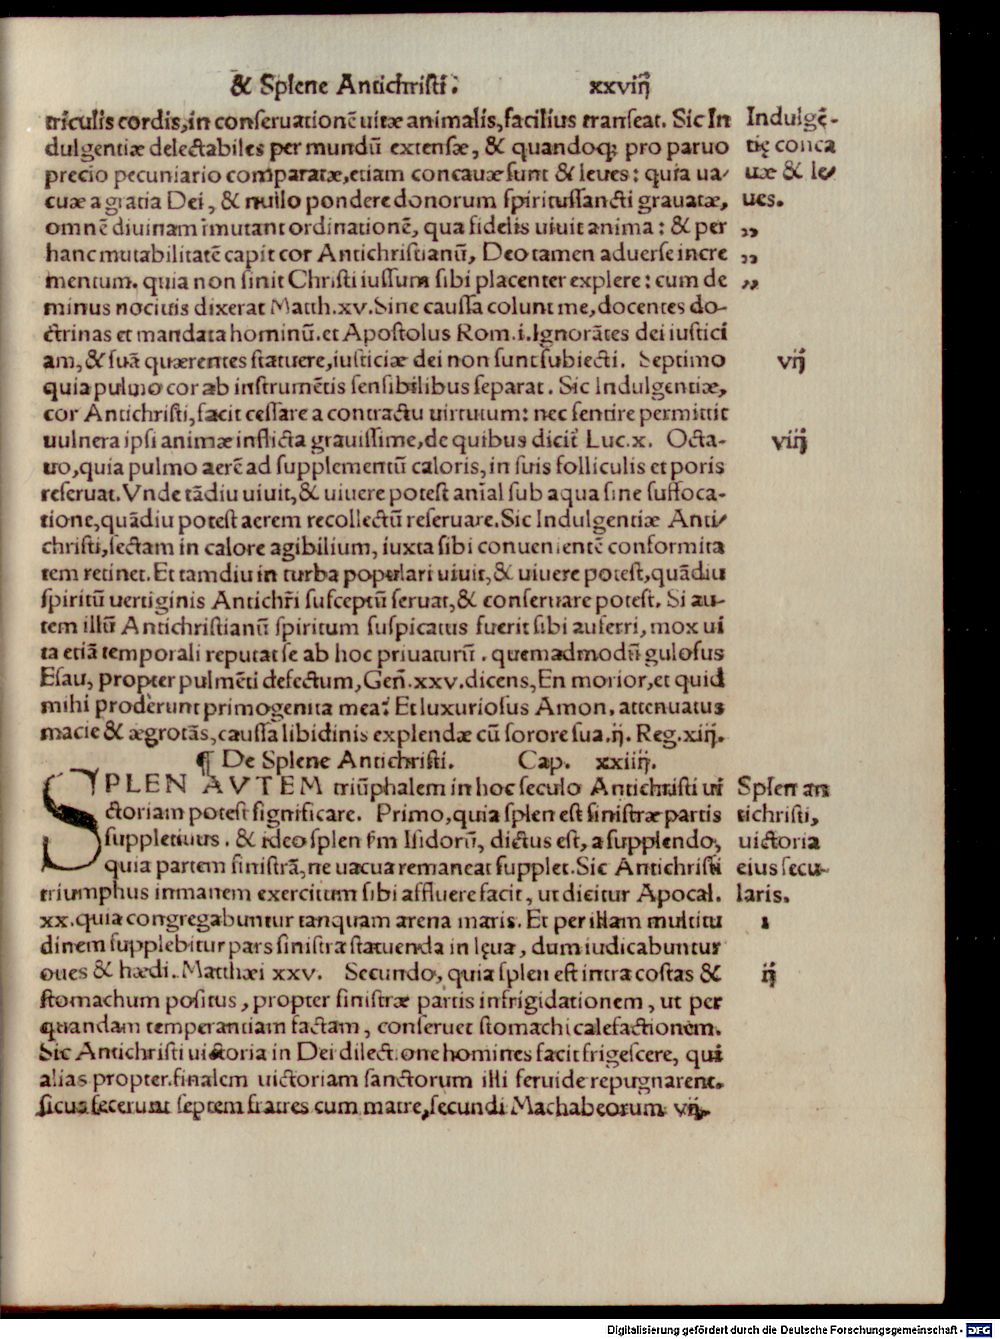 & Splene Antichristi. xxviij
triculis cordis, in conseruationē uitæ animalis, facilius transeat. Sic In
dulgentiæ delectabiles per mundū extensæ, & quandoq; pro paruo
precio pecuniario comparatæ, etiam concauæ sunt & leues: quia ua/
cuæ a gratia Dei, & nullo pondere donorum spiritussancti grauatæ,
omnē diuinam īmutant ordinationē, qua fidelis uiuit anima: & per
hanc mutabilitatē capit cor Antichristianū, Deo tamen aduerse incre
mentum. quia non sinit Christi iussum sibi placenter explere: cum de
minus nociuis dixerat Matth.xv. Sine caussa colunt me, docentes do-
ctrinas et mandata hominū. et Apostolus Rom.i. Ignorātes dei iustici
am, & suā quærentes statuere, iusticiæ dei non sunt subiecti. Septimo
quia pulmo cor ab instrumētis sensibilibus separat. Sic Indulgentiæ,
cor Antichristi, facit cessare a contractu uirtutum: nec sentire permittit
uulnera ipsi animæ inflicta grauissime, de quibus dicit̄ Luc.x. Octa-
uo, quia pulmo aerē ad supplementū caloris, in suis folliculis et poris
reseruat. Vnde tādiu uiuit, & uiuere potest anīal sub aqua sine suffoca-
tione, quādiu potest aerem recollectū reseruare. Sic Indulgentiæ Anti/
christi, sectam in calore agibilium, iuxta sibi conuenientē conformita
tem retinet. Et tamdiu in turba populari uiuit, & uiuere potest, quādiu
spiritū uertiginis Antichr̄i susceptū seruat, & conseruare potest. Si au-
tem illū Antichristianū spiritum suspicatus fuerit sibi auferri, mox ui
ta etiā temporali reputat se ab hoc priuaturū. quemadmodū gulosus
Esau, propter pulmēti defectum, Geñ.xxv. dicens, En morior, et quid
mihi proderunt primogenita mea? Et luxuriosus Amon, attenuatus
macie & ægrotās, caussa libidinis explendæ cū sorore sua. ij. Reg. xiij.
¶ De Splene Antichristi. Cap. xxiiij.
SPLEN AVTEM triūphalem in hoc seculo Antichristi ui
ctoriam potest significare. Primo, quia splen est sinistræ partis
suppletiuus. & ideo splen s̄m Isidorū, dictus est, a supplendo,
quia partem sinistrā, ne uacua remaneat supplet. Sic Antichristi
triumphus inmanem exercitum sibi affluere facit, ut dicitur Apocal.
xx. quia congregabuntur tanquam arena maris. Et per illam multitu
dinem supplebitur pars sinistra statuenda in lęua, dum iudicabuntur
oues & hædi. Matthæi xxv. Secundo, quia splen est intra costas &
stomachum positus, propter sinistræ partis infrigidationem, ut per
quandam temperantiam factam, conseruet stomachi calefactionem.
Sic Antichristi uictoria in Dei dilectione homines facit frigescere, qui
alias propter finalem uictoriam sanctorum illi feruide repugnarent.
sicut fecerunt septem fratres cum matre, secundi Machabeorum vij.
Indulgē-
tię conca
uæ & le/
ues.
„
„
„
vij
viij
Splen an
tichristi,
uictoria
eius secu-
laris.
i
ij
Digitalisierung gefördert durch die Deutsche Forschungsgemeinschaft - DFG